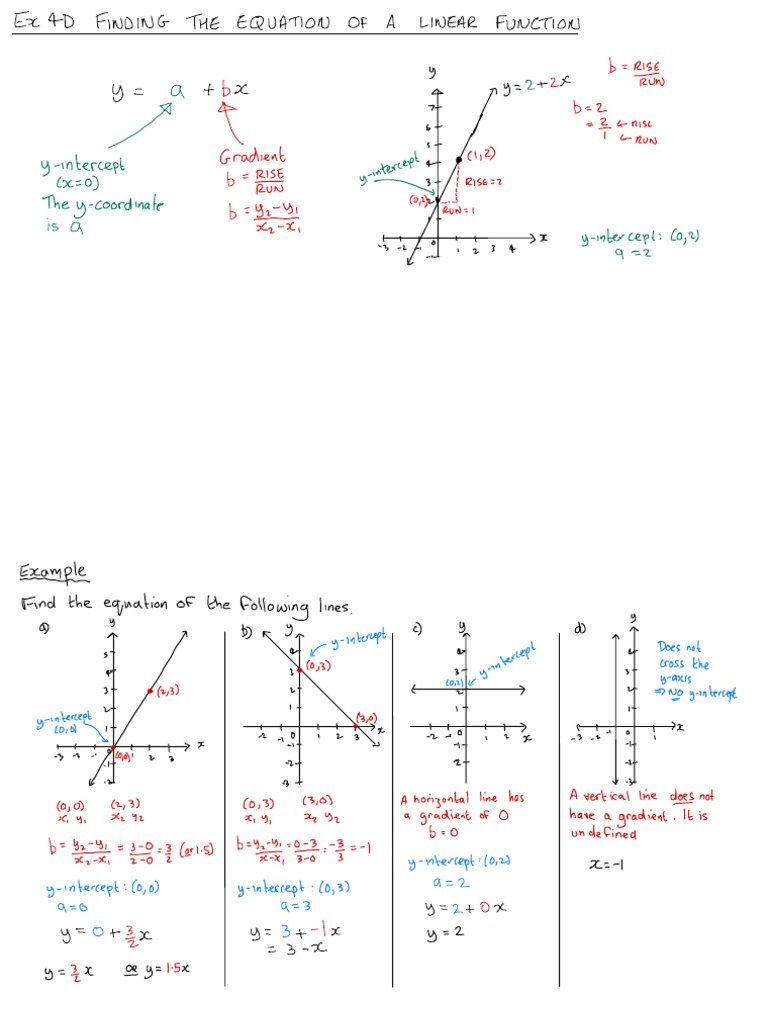 Ex 4D FINDING THE EQUATION OF A LINEAR FUNCTION
y = a + bx
y-intercept
(x=0)
The y-coordinate
is a
Gradient
b = RISE/RUN
b = y₂-y₁/x₂-x₁
y
y=2+2x
7
6
5
4
3
2
y-intercept
(1,2)
RISE=2
(0,2)
RUN=1
-3 -2 -1 0 1 2 3 4 x
-1
b = RISE/RUN
b=2
= 2/1 ← RISE
← RUN
y-intercept: (0,2)
a=2
Example
Find the equation of the following lines.
a)
y
5
4
3
2
1
(2,3)
y-intercept
(0,0)
-3 -2 -1 0 (0,0) 1 2 3 x
-1
-2
(0,0) (2,3)
x₁ y₁ x₂ y₂
b = y₂-y₁/x₂-x₁ = 3-0/2-0 = 3/2 (or 1.5)
y-intercept: (0,0)
a=0
y = 0 + 3/2x
y = 3/2x or y = 1.5x
b)
y
y-intercept
4
3
2
1
(0,3)
(3,0)
-2 -1 0 1 2 3 x
-1
-2
-3
(0,3) (3,0)
x₁ y₁ x₂ y₂
b = y₂-y₁/x-x₁ = 0-3/3-0 = -3/3 = -1
y-intercept: (0,3)
a=3
y = 3 + -1x
= 3-x
c)
y
y-intercept
4
3
(0,2)
2
1
-2 -1 0 1 2 3 x
-1
-2
A horizontal line has
a gradient of 0
b=0
y-ntercept: (0,2)
a=2
y = 2 + 0x
y = 2
d)
y
4
3
2
1
Does not
cross the
y-axis
⇒ NO y-intercept
-3 -2 -1 0 1 x
-1
-2
-3
A vertical line does not
have a gradient. It is
undefined
x=-1